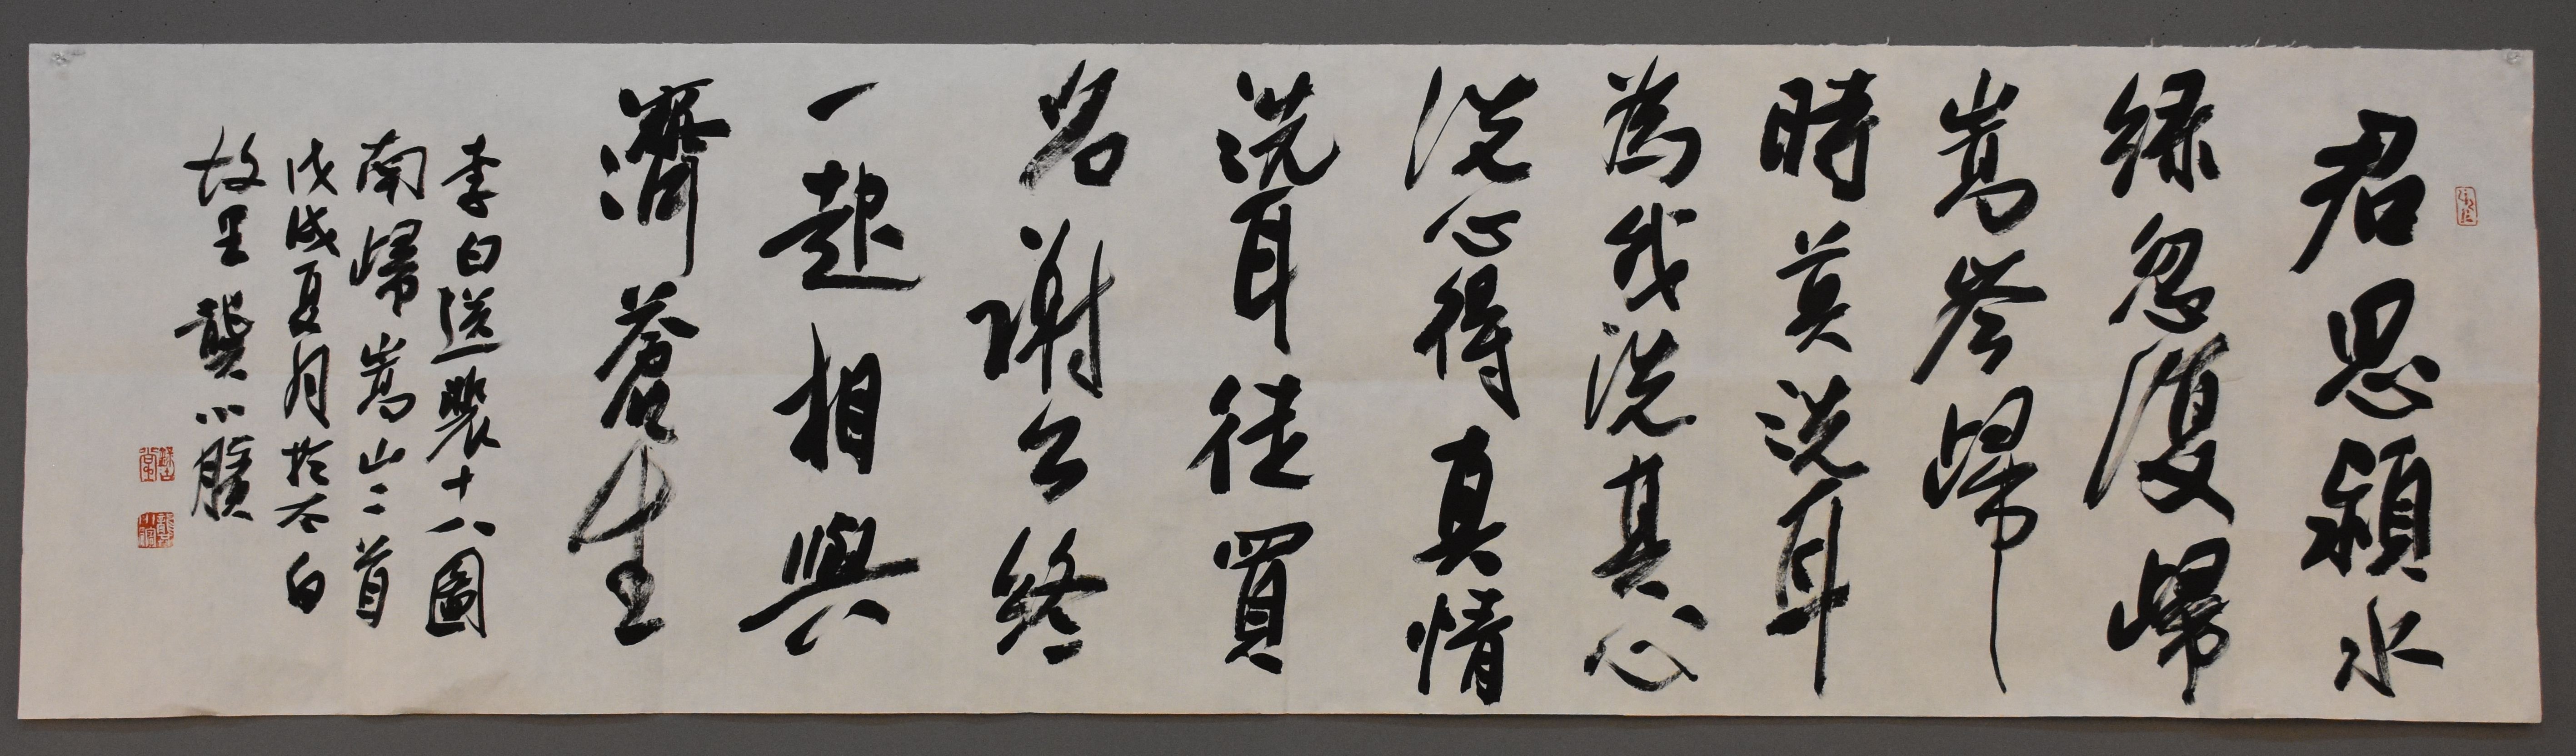 君思潁水
綠忽復歸
嵩岑歸
時莫洗耳
為我洗其心
洗心得真情
洗耳徒買
名謝公終
一起相與
濟蒼生
李白送裴十八圖
南歸嵩山二首
戊戌夏月於太白
故里龔小膑